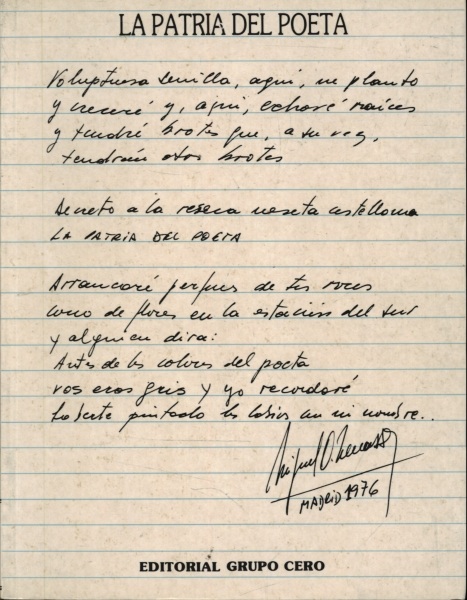 LA PATRIA DEL POETA
Voluptuosa semilla, aquí, me planto
y creceré y, aquí, echaré raíces
y tendré brotes que, a su vez,
tendrán otros brotes
Decreto a la reseca meseta castellana
LA PATRIA DEL POETA
Arrancaré perfumes de tus rocas
como de flores en la estación del sur
y alguien dirá:
Antes de los colores del poeta
vos eras gris y yo recordaré
haberte pintado los labios con mi nombre..
Miguel O. Menassa
MADRID 1976
EDITORIAL GRUPO CERO